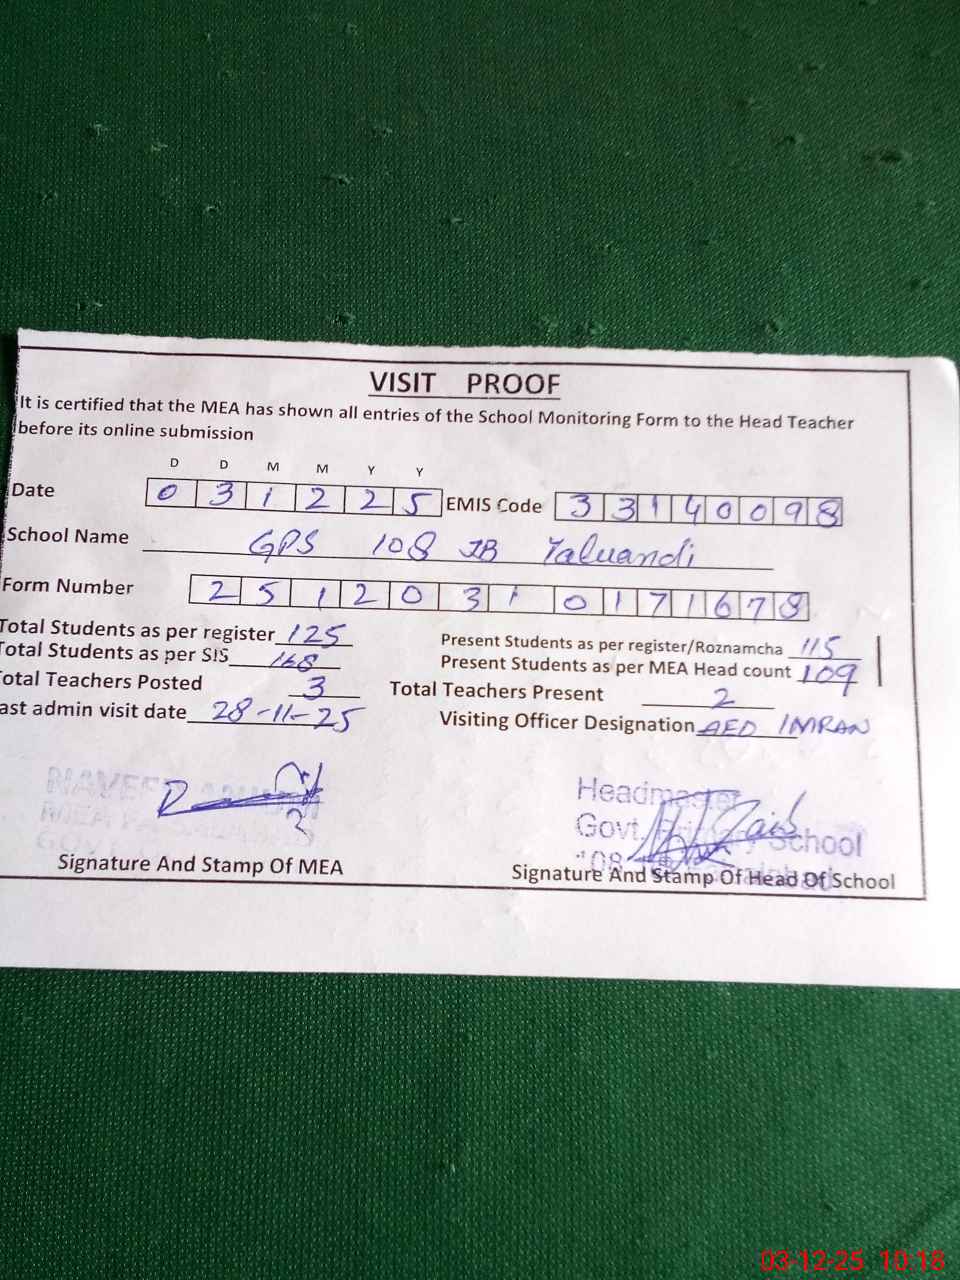 VISIT PROOF
It is certified that the MEA has shown all entries of the School Monitoring Form to the Head Teacher
before its online submission
D D M M Y Y
Date 0 3 1 2 2 5 EMIS Code 3 3 1 4 0 0 9 8
School Name GPS 108 JB Taluandi
Form Number 2 5 1 2 0 3 1 0 1 7 1 6 7 8
Total Students as per register 125 Present Students as per register/Roznamcha 115
Total Students as per SIS 168 Present Students as per MEA Head count 109
Total Teachers Posted 3 Total Teachers Present 2
ast admin visit date 28-11-25 Visiting Officer Designation AEO IMRAN
Headmaster
Govt. Primary School
108
Signature And Stamp Of MEA Signature And Stamp Of Head Of School
03-12-25 10:18